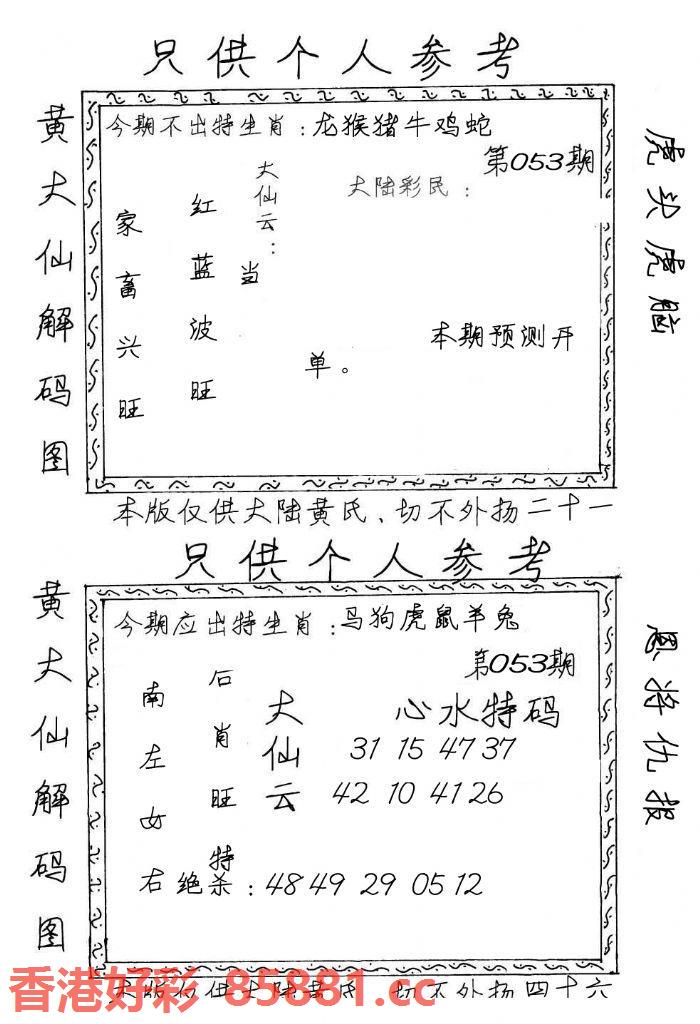 只供个人参考
黄大仙解码图
今期不出特生肖：龙猴猪牛鸡蛇
第053期
大仙云：
大陆彩民：
红蓝波旺
家畜兴旺
当
本期预测开
单。
虎头虎脑
本版仅供大陆黄氏、切不外扬二十一
只供个人参考
黄大仙解码图
今期应出特生肖：马狗虎鼠羊兔
第053期
南左女右
后肖旺特
大仙云
心水特码
31 15 47 37
42 10 41 26
绝杀：48 49 29 05 12
恩将仇报
本版仅供大陆黄氏 切不外扬四十六
香港好彩 85881.cc